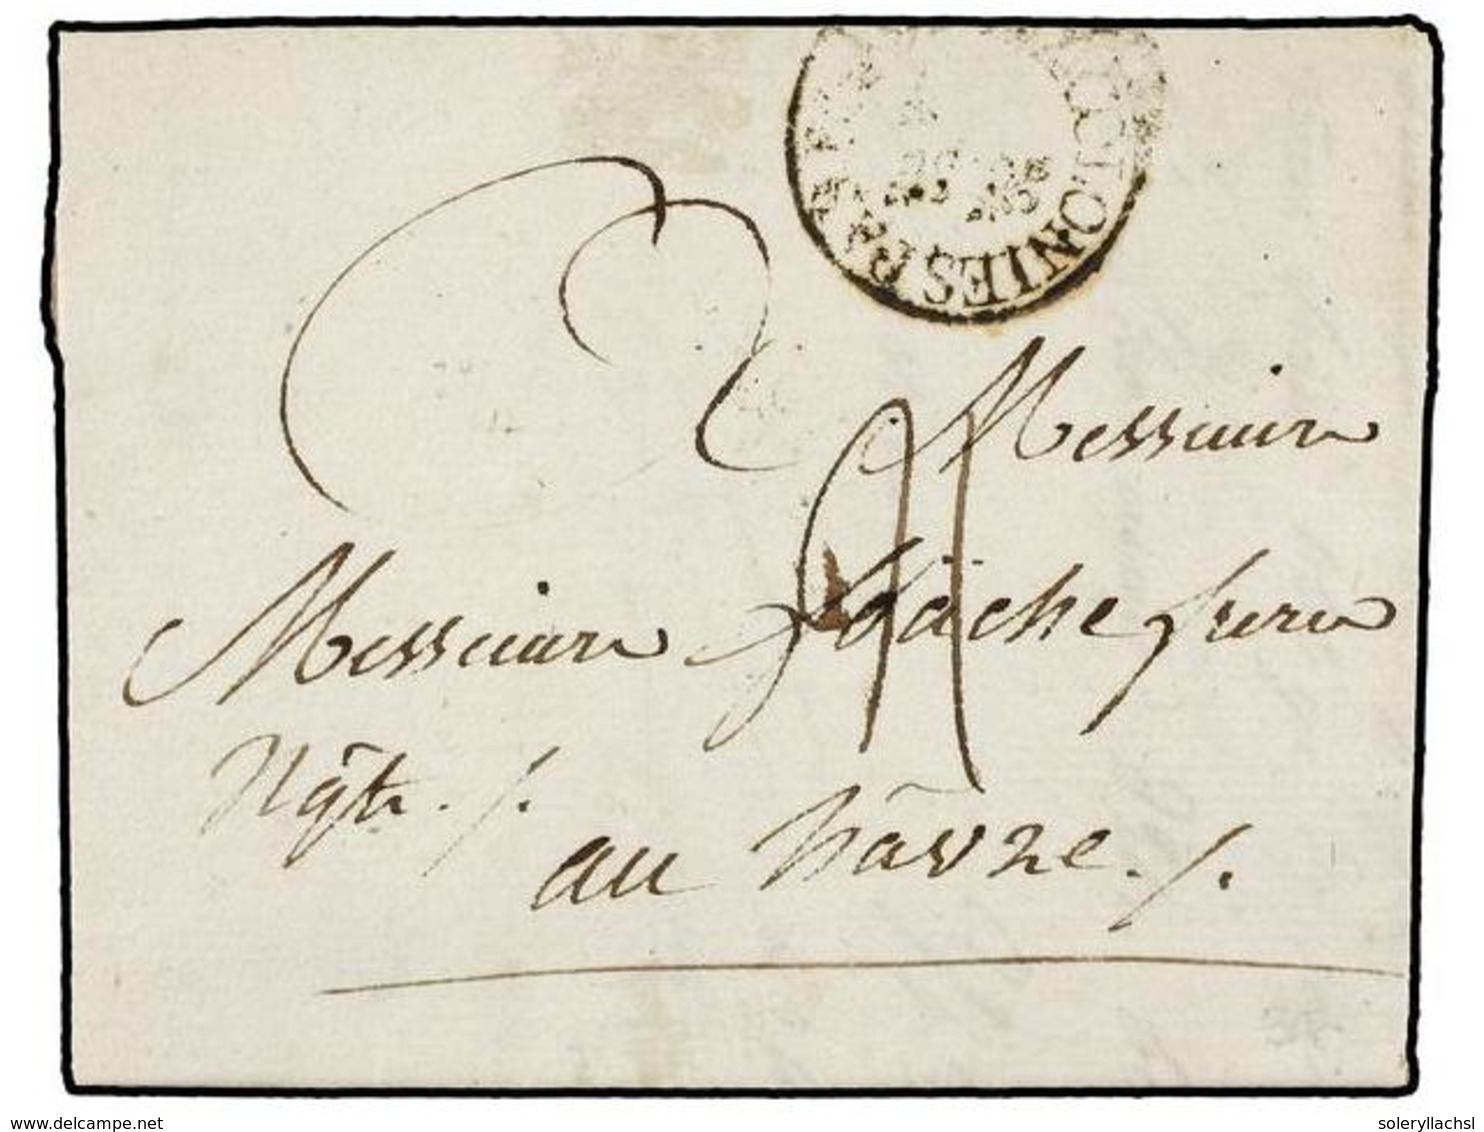 COLONIES PAR
Messieurs
Messieurs Foäche freres
Ngts ./.
au hâvre ./.
delcampe.net
soleryllachsl